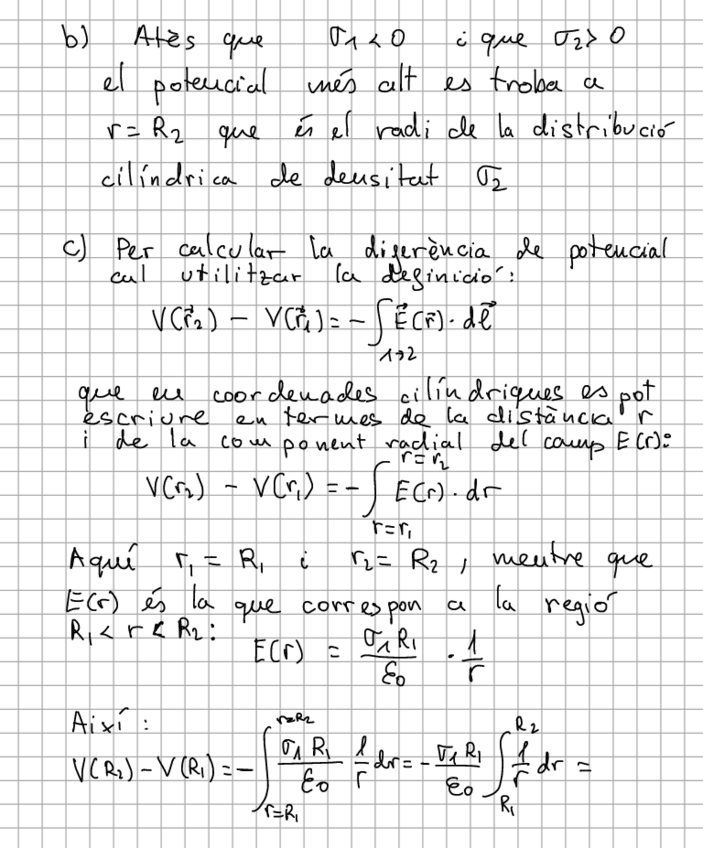 b) Atès que σ₁ < 0 i que σ₂ > 0
el potencial més alt es troba a
r = R₂ que és el radi de la distribució
cilíndrica de densitat σ₂
c) Per calcular la diferència de potencial
cal utilitzar la definició:
V(r⃗₂) − V(r⃗₁) = − ∫_{1→2} E⃗(r⃗) · dℓ⃗
que en coordenades cilíndriques es pot
escriure en termes de la distància r
i de la component radial del camp E(r):
V(r₂) − V(r₁) = − ∫_{r=r₁}^{r=r₂} E(r) · dr
Aquí r₁ = R₁ i r₂ = R₂, mentre que
E(r) és la que correspon a la regió
R₁ < r < R₂:
E(r) = σ₁R₁/ε₀ · 1/r
Així:
V(R₂) − V(R₁) = − ∫_{r=R₁}^{r=R₂} σ₁R₁/ε₀ 1/r dr = − σ₁R₁/ε₀ ∫_{R₁}^{R₂} 1/r dr =